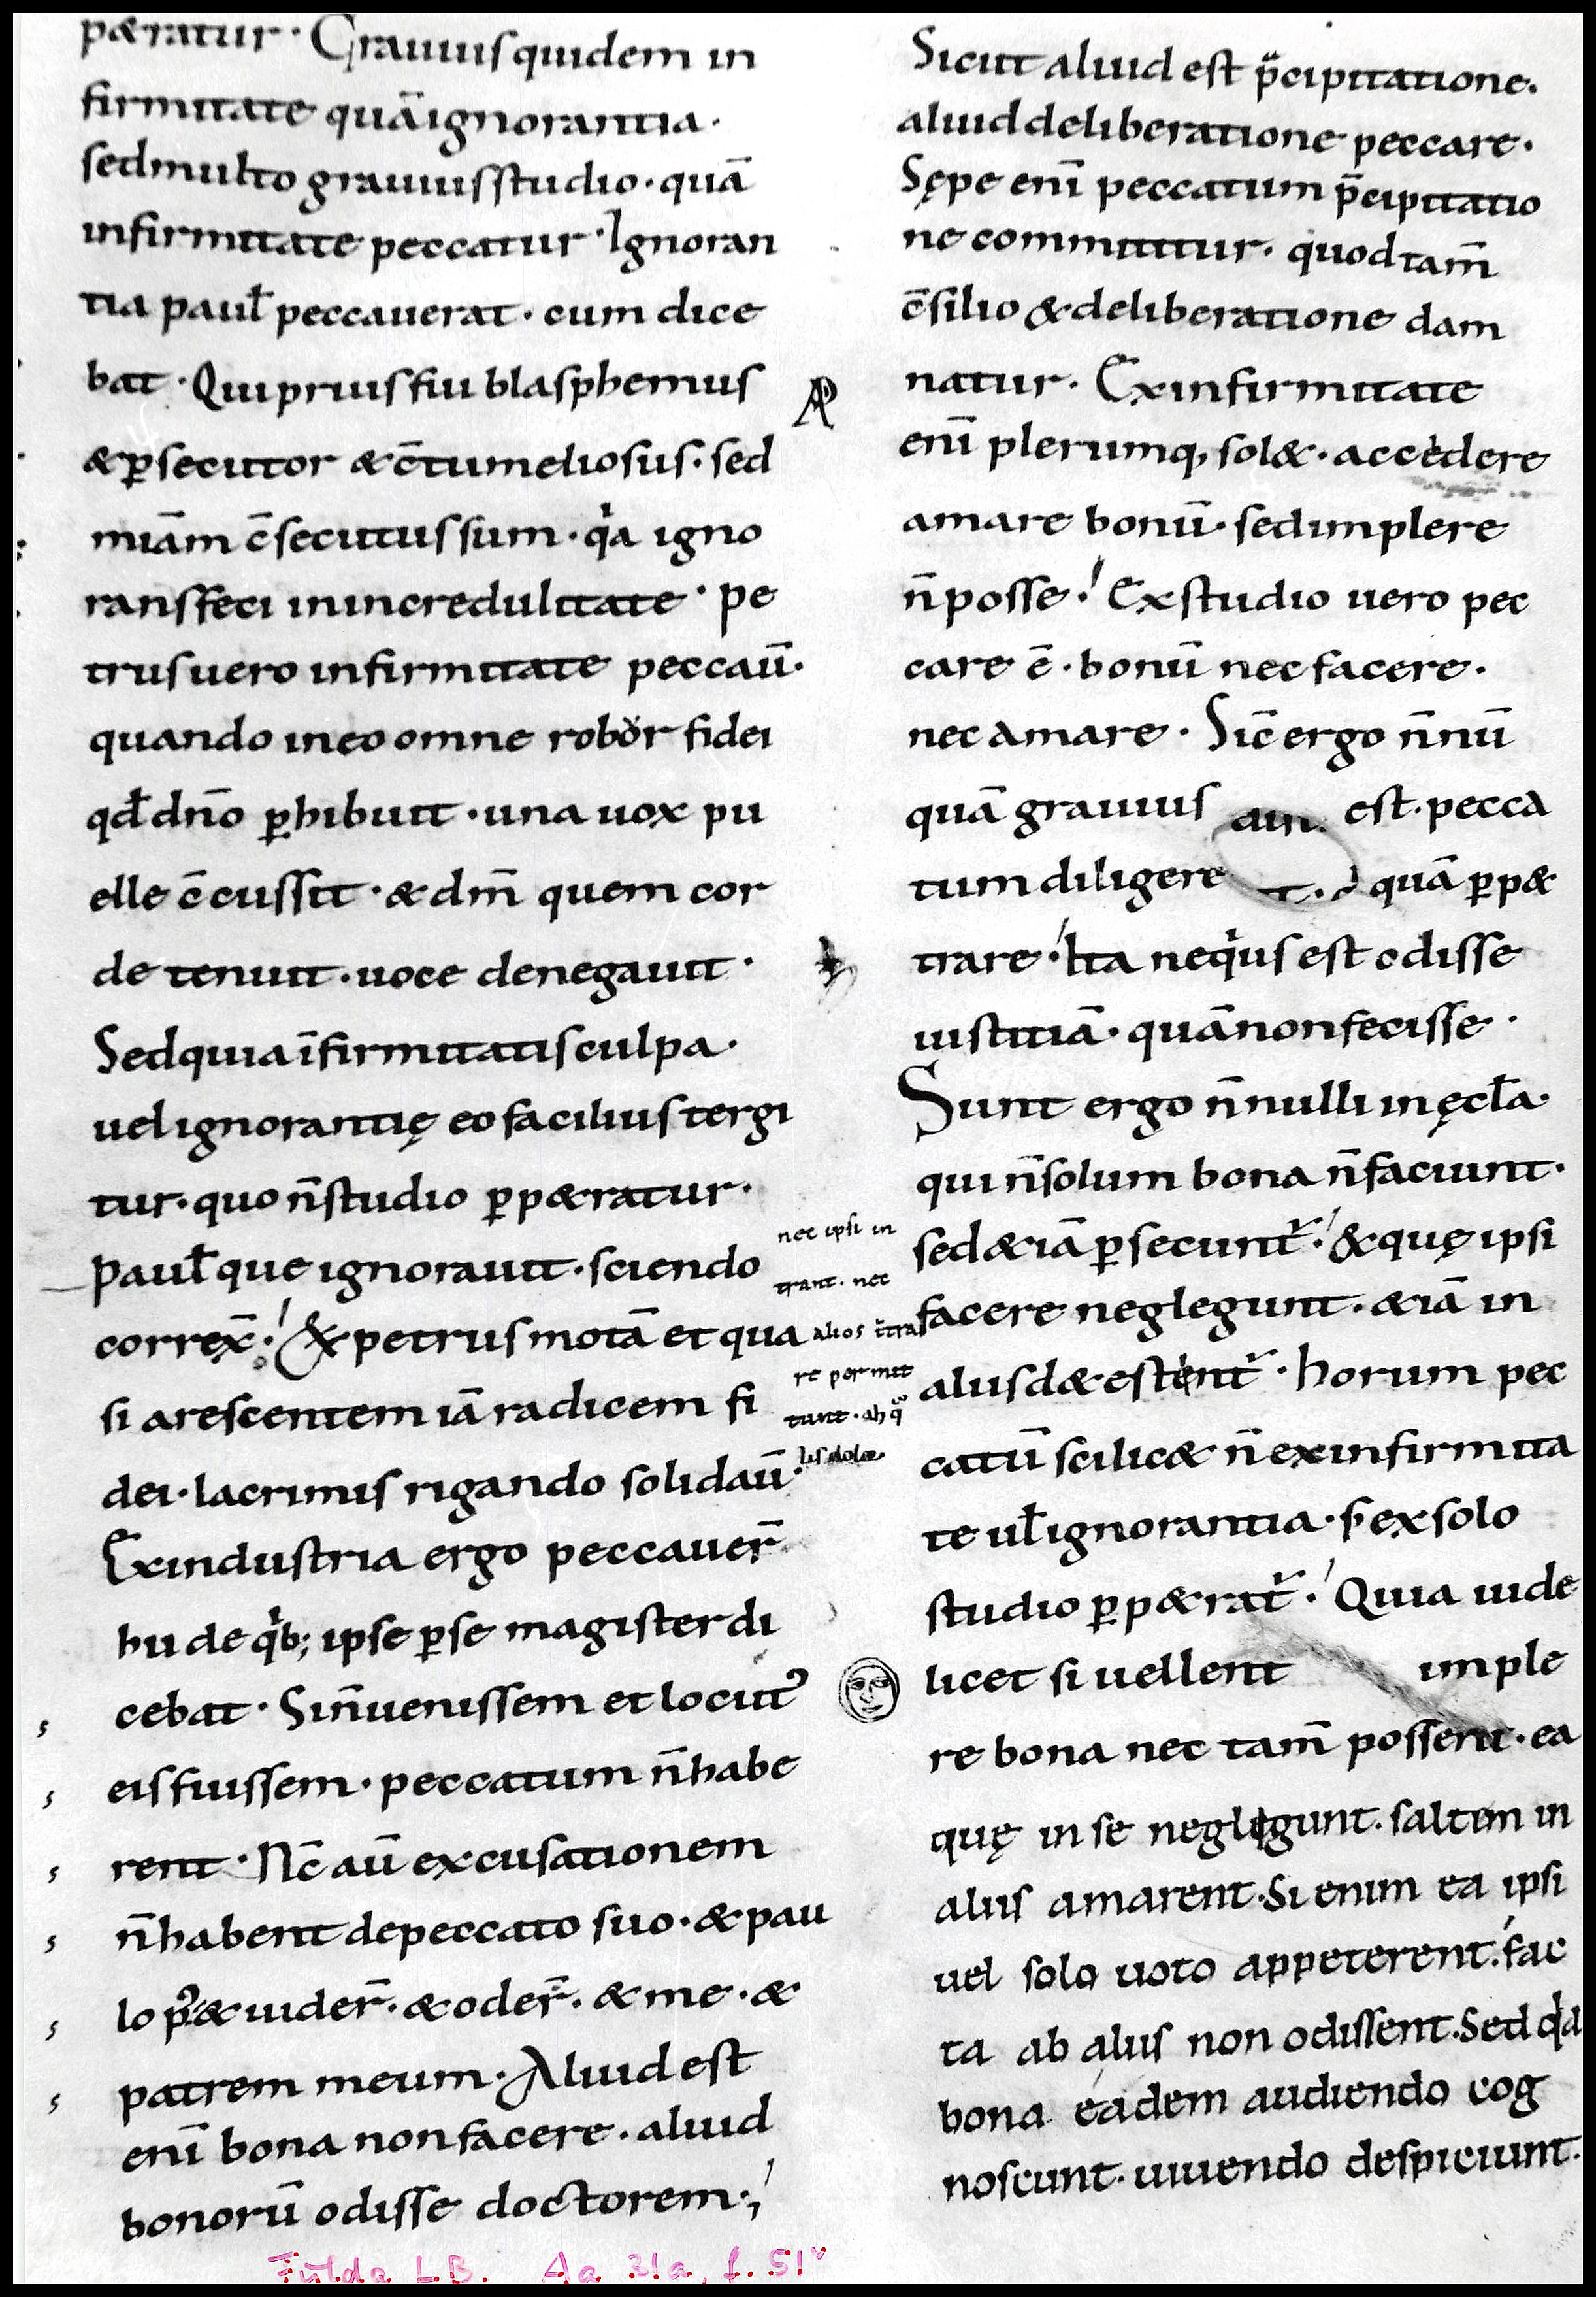 p&ratur · Grauius quidem in
firmitate quā ignorantia ·
sed multo grauius studio · quā
infirmitate peccatur · Ignoran
tia paul̄ peccauerat · cum dice
bat · Qui prius fui blasphemus
& ꝑsecutor & c̄tumeliosus · sed
miām c̄secutus sum · qͥa igno
rans feci in incredulitate · pe
trus uero infirmitate peccaū ·
quando in eo omne robor fidei
qd̄ dnō ꝑhibuit · una uox pu
elle c̄cussit · & dm̄ quem cor
de tenuit · uoce denegauit ·
Sed quia īfirmitatis culpa ·
uel ignorantię eo facilius tergi
tur · quo n̄ studio ꝑp&ratur ·
paul̄ que ignorauit · sciendo
correx̄ · & petrus motā et qua
si arescentem iā radicem fi
dei · lacrimis rigando solidaū ·
Ex industria ergo peccauer̄
hii de qͥb; ipse ꝑ se magister di
cebat · Si n̄ uenissem et locut᾽
eis fuissem · peccatum n̄ habe
rent · Nc̄ aū excusationem
n̄ habent de peccato suo · & pau
lo p᾽ · & uider̄ · & oder̄ · & me · &
patrem meum · Aliud est
enī bona non facere · aliud
bonorū odisse doctorem ·
nec ipsi in
trant · nec
alios īтrа
re permit
tunt · ab qͦ
Sicut aliud est p̄cipitatione ·
aliud deliberatione peccare ·
Sępe enī peccatum p̄cipitatio
ne committitur · quod tam̄
c̄silio & deliberatione dam
natur · Ex infirmitate
enī plerumq, sol& · accedere
amare bonū · sed implere
n̄ posse · Ex studio uero pec
care ē · bonū nec facere ·
nec amare · Sic̄ ergo n̄nū
quā grauius est · pecca
tum diligere quā ꝑp&
trare · Ita neqͥus est odisse
iustitiā · quā non fecisse ·
Sunt ergo n̄nulli in ęcl̄a ·
qui n̄ solum bona n̄ faciunt ·
sed &iā ꝑsecunt̄ · & quę ipsi
facere neglegunt · &iā in
aliis d&estent̄ · horum pec
catū scilic& n̄ ex infirmita
te ul̄ ignorantia · s· ex solo
studio ꝑp&rat̄ · Quia uide
licet si uellent imple
re bona nec tam̄ possent · ea
quę in se neglegunt · saltem in
aliis amarent · Si enim ea ipsi
uel solo uoto appeterent · fac
ta ab aliis non odissent · Sed qͥa
bona eadem audiendo cog
noscunt · uiuendo despiciunt ·
Fulda L.B. Aa 31a, f. 51ᵛ